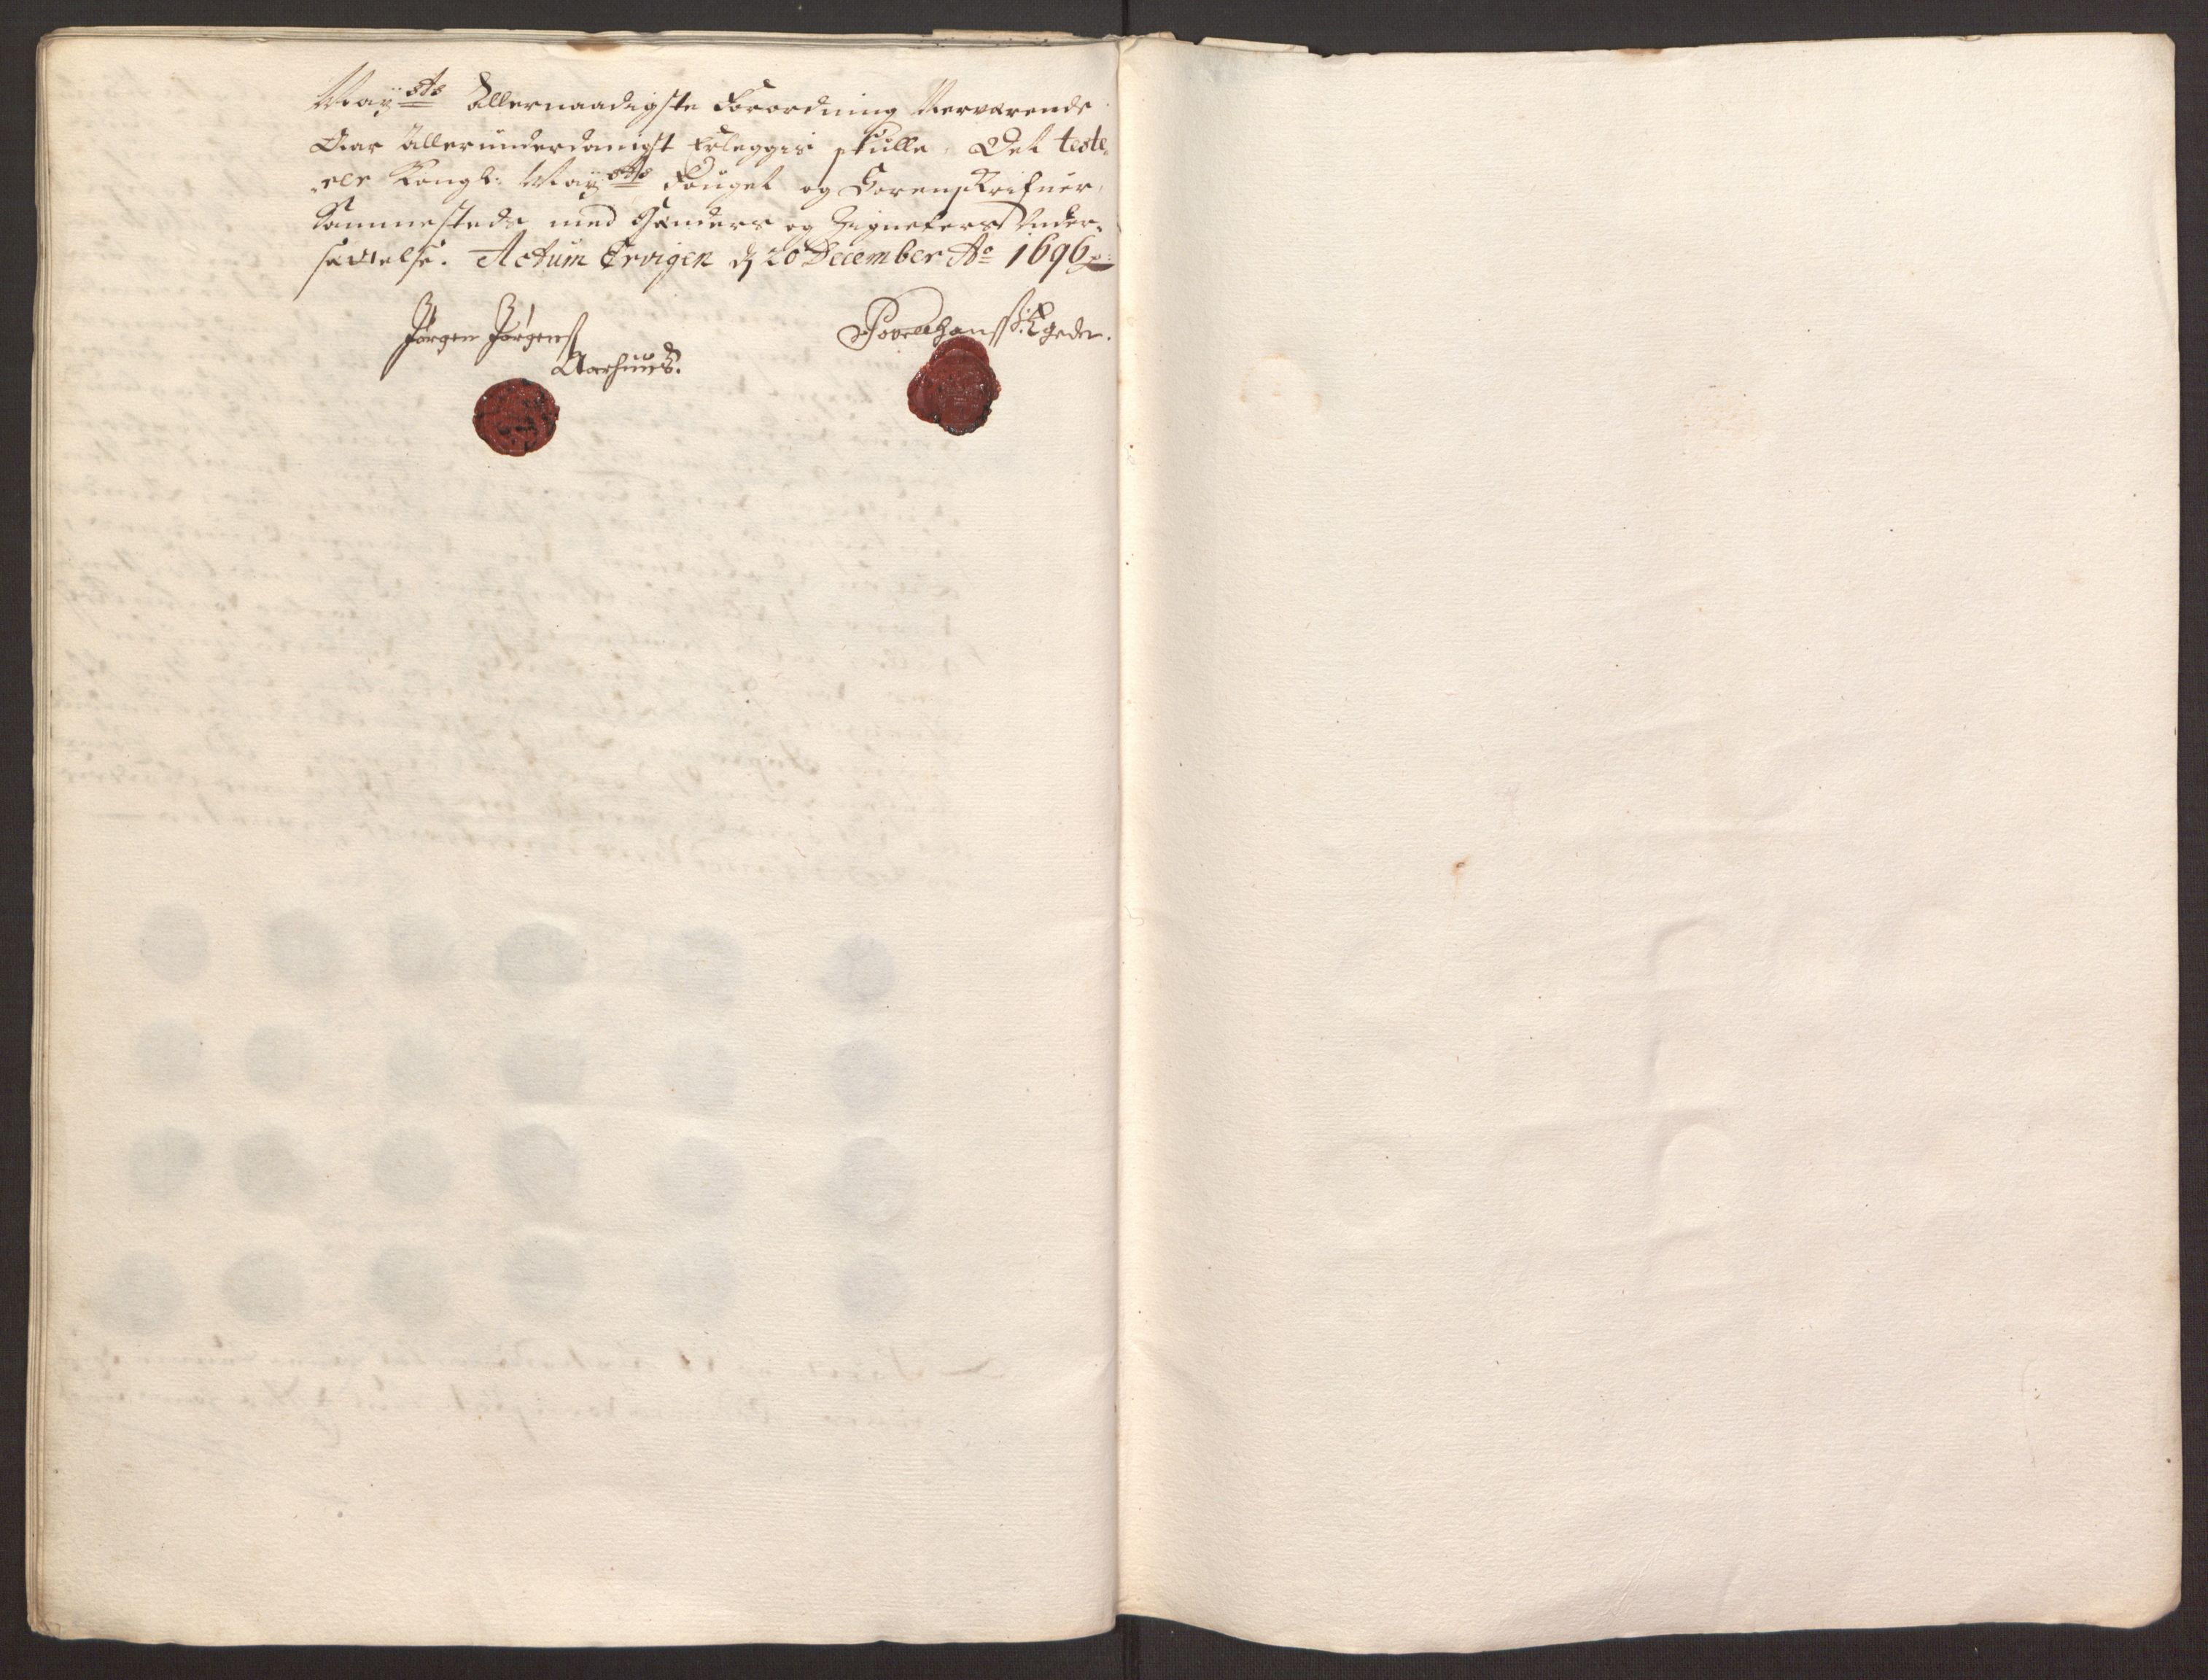 Maÿ:sts Allernaadigste Forordning Nerværende
Aar Allerunderdanigst Erleggis skulle. Det teste-
rer Kongl: Maÿ:sts Fouget og Sorenskrifuer,
sammesteds med Hænders og Zigneters Under-
sættelse. Actum Ervigen d 20 December Ao 1696
Jørgen Jørgens
Aarhuus.
Povel Hanss: Egede.